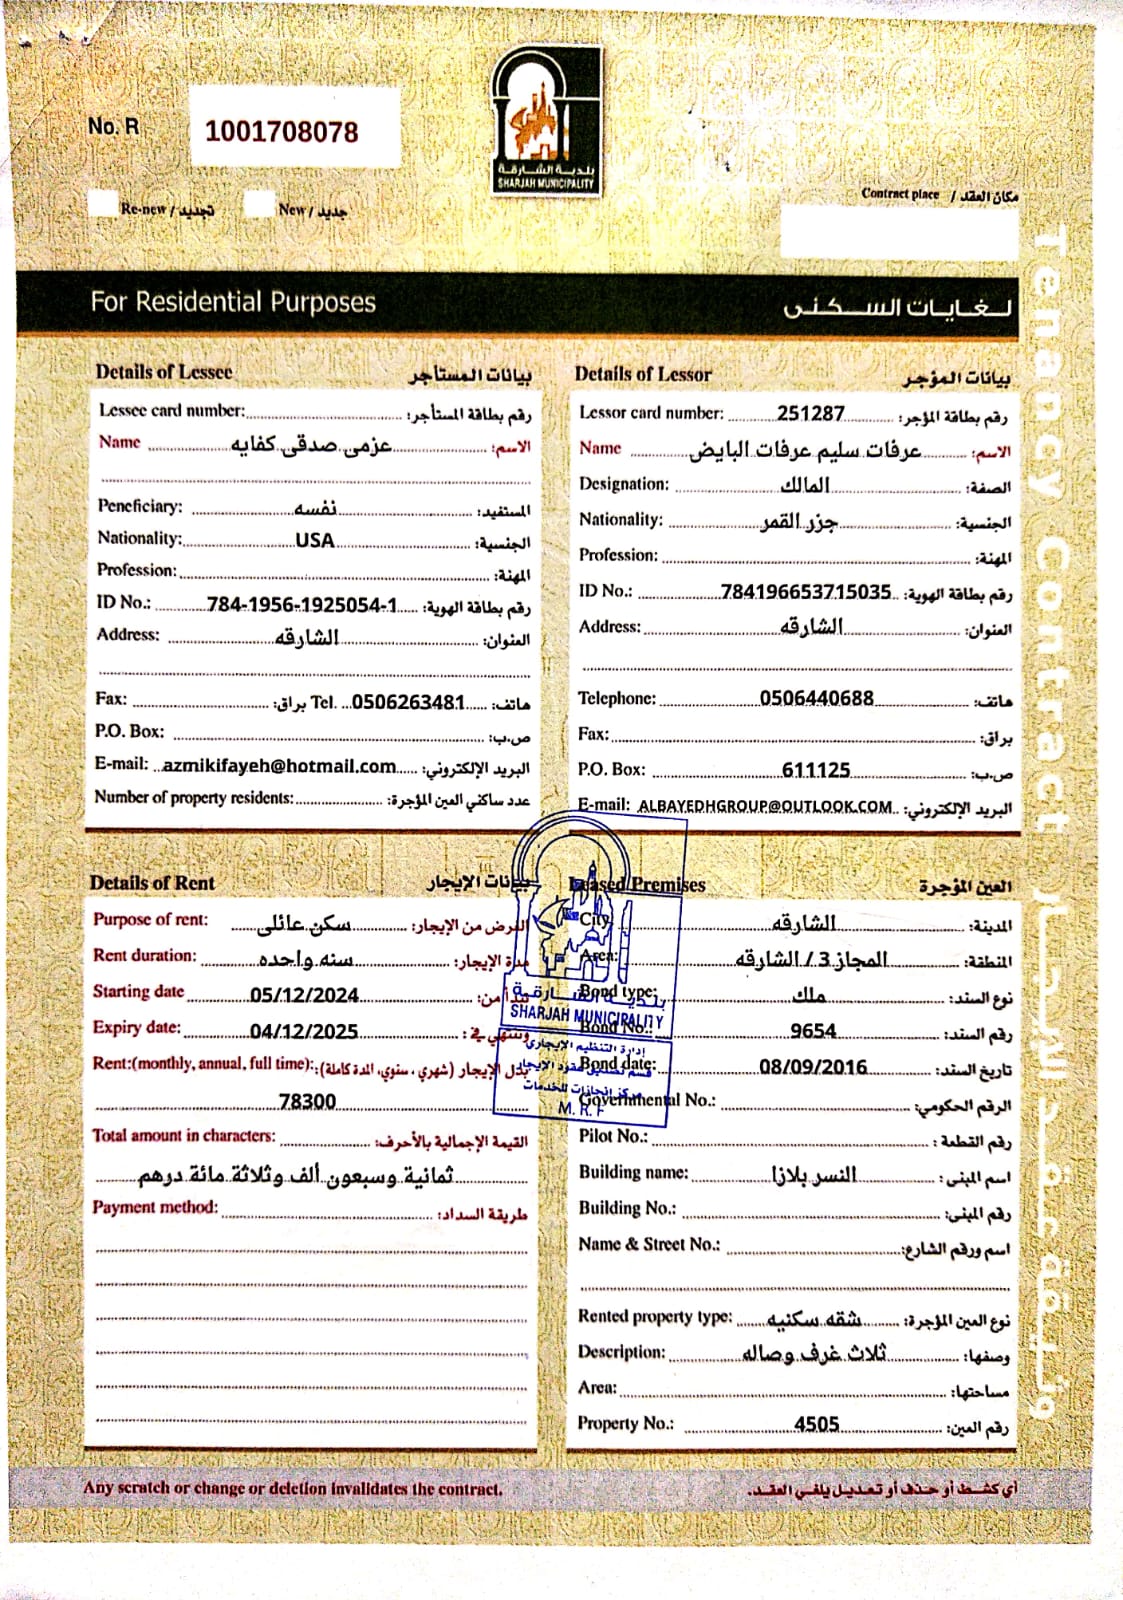 No. R 1001708078
بلدية الشارقة
SHARJAH MUNICIPALITY
Re-new / تجديد New / جديد
Contract place / مكان العقد
For Residential Purposes لغايات السكنى
Tenancy Contract
Details of Lessee بيانات المستأجر
Lessee card number: رقم بطاقة المستأجر:
Name عزمى صدقى كفايه الاسم:
Peneficiary: نفسه المستفيد:
Nationality: USA الجنسية:
Profession: المهنة:
ID No.: 784-1956-1925054-1 رقم بطاقة الهوية:
Address: الشارقه العنوان:
Fax: براق: Tel. 0506263481 هاتف:
P.O. Box: ص.ب:
E-mail: azmikifayeh@hotmail.com البريد الإلكتروني:
Number of property residents: عدد ساكني العين المؤجرة:
Details of Lessor بيانات المؤجر
Lessor card number: 251287 رقم بطاقة المؤجر:
Name عرفات سليم عرفات البايض الاسم:
Designation: المالك الصفة:
Nationality: جزر القمر الجنسية:
Profession: المهنة:
ID No.: 784196653715035 رقم بطاقة الهوية:
Address: الشارقه العنوان:
Telephone: 0506440688 هاتف:
Fax: براق:
P.O. Box: 611125 ص.ب:
E-mail: ALBAYEDHGROUP@OUTLOOK.COM البريد الإلكتروني:
Details of Rent بيانات الإيجار
Purpose of rent: سكن عائلى الغرض من الإيجار:
Rent duration: سنه واحده مدة الإيجار:
Starting date 05/12/2024 تبدأ من:
Expiry date: 04/12/2025 وتنتهي في:
Rent:(monthly, annual, full time): بدل الإيجار (شهري ، سنوي، المدة كاملة):
78300
Total amount in characters: القيمة الإجمالية بالأحرف:
ثمانية وسبعون ألف وثلاثة مائة درهم
Payment method: طريقة السداد:
Leased Premises العين المؤجرة
City: الشارقه المدينة:
Area: المجاز 3 / الشارقه المنطقة:
Bond type: ملك نوع السند:
Bond No.: 9654 رقم السند:
Bond date: 08/09/2016 تاريخ السند:
Governmental No.: الرقم الحكومي:
Pilot No.: رقم القطعة :
Building name: النسر بلازا اسم المبنى :
Building No.: رقم المبنى:
Name & Street No.: اسم ورقم الشارع:
Rented property type: شقه سكنيه نوع العين المؤجرة:
Description: ثلاث غرف وصاله وصفها:
Area: مساحتها:
Property No.: 4505 رقم العين:
بلدية الشارقة
SHARJAH MUNICIPALITY
إدارة التنظيم الإيجاري
قسم تصديق عقود الإيجار
مركز إنجازات للخدمات
M. R. F
Any scratch or change or deletion invalidates the contract. أي كشط أو حذف أو تعديل يلغي العقد.